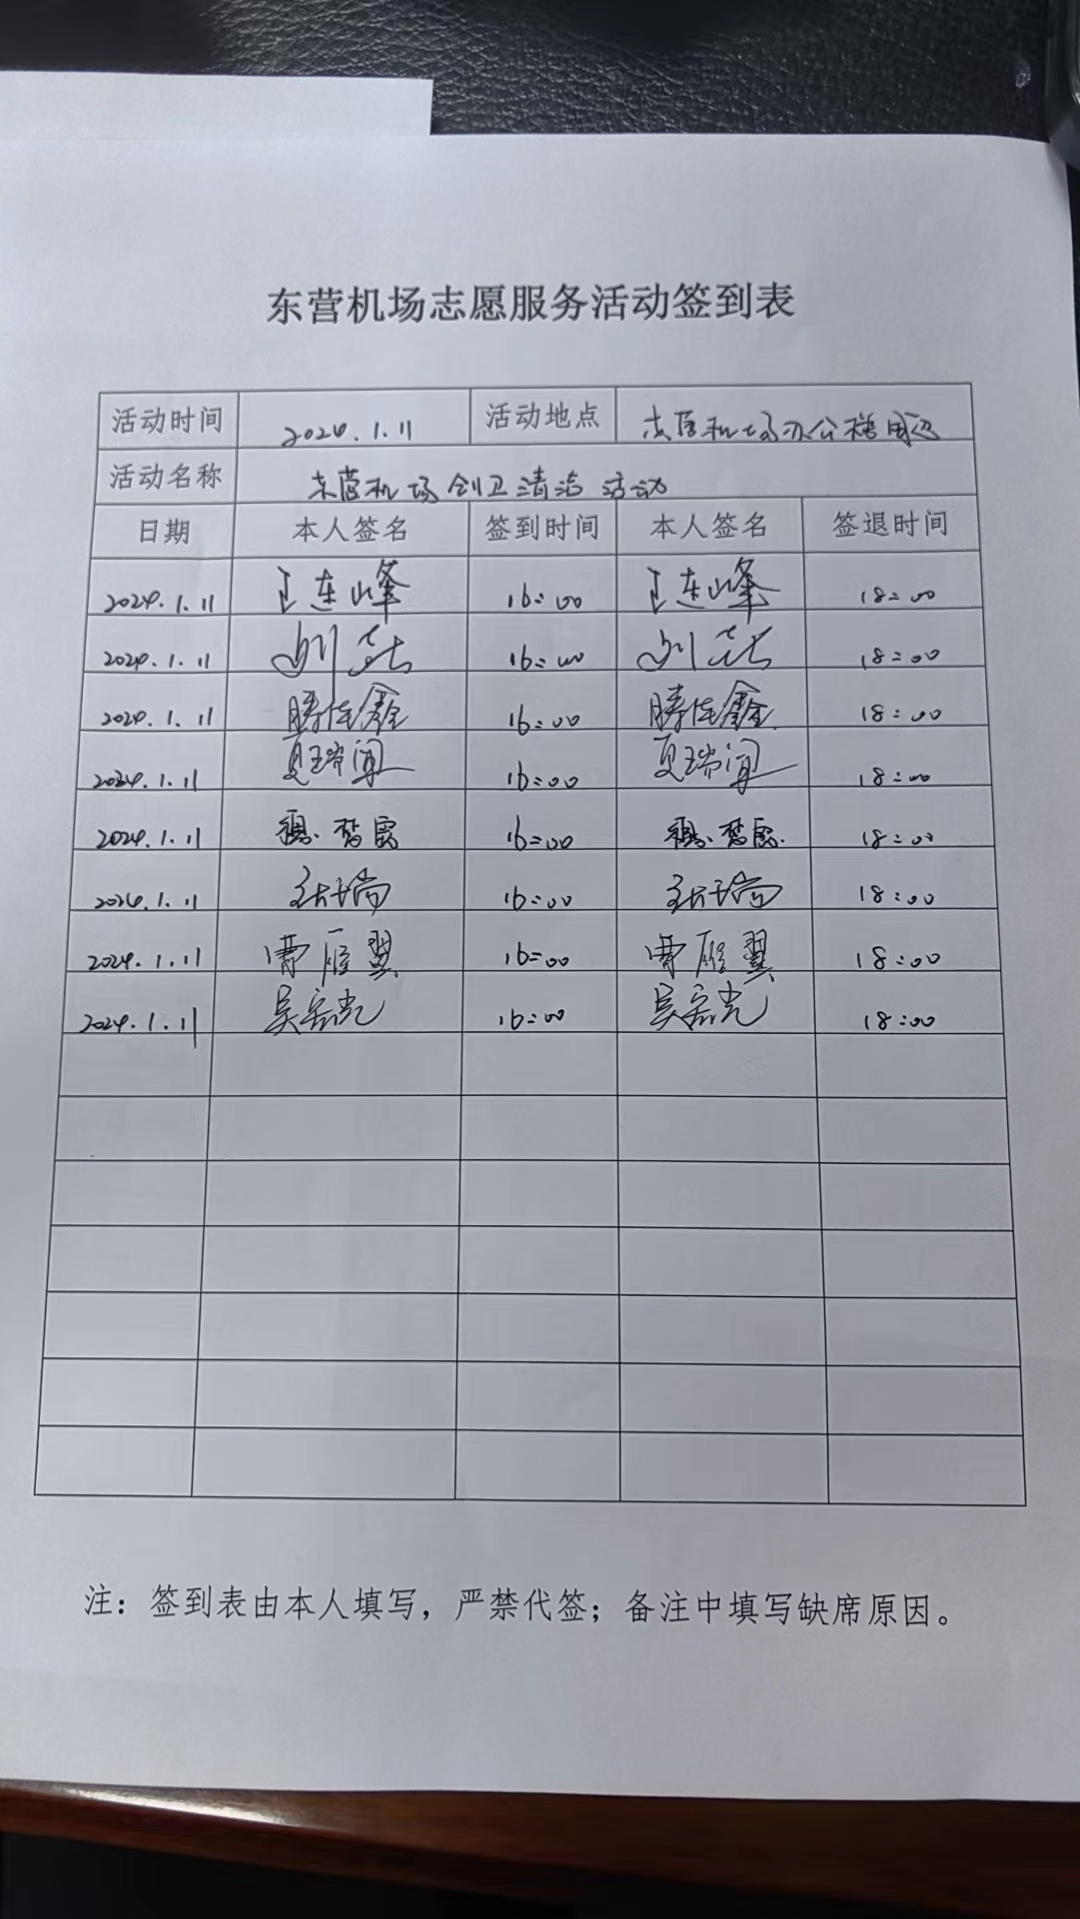 东营机场志愿服务活动签到表
活动时间 2024.1.11 活动地点 东营机场办公楼周边
活动名称 东营机场创卫清洁活动
日期 本人签名 签到时间 本人签名 签退时间
2024.1.11 王连峰 16:00 王连峰 18:00
2024.1.11 16:00 18:00
2024.1.11 滕佳鑫 16:00 滕佳鑫 18:00
2024.1.11 夏瑞闻 16:00 夏瑞闻 18:00
2024.1.11 16:00 18:00
2024.1.11 张瑞 16:00 张瑞 18:00
2024.1.11 曹雁翼 16:00 曹雁翼 18:00
2024.1.11 吴宗光 16:00 吴宗光 18:00
注：签到表由本人填写，严禁代签；备注中填写缺席原因。